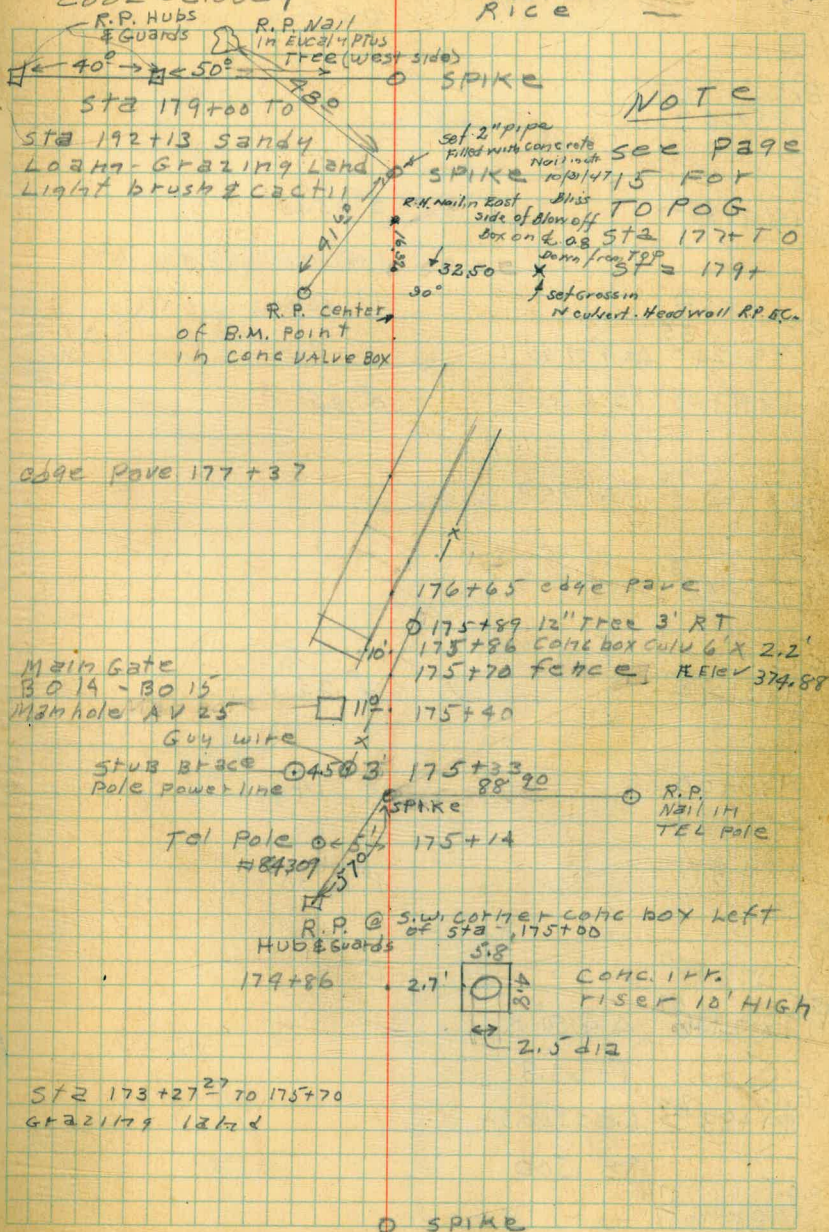 COOL - CLOUDY
RICE
R.P. Hubs
& Guards
R.P. Nail
in Eucalyptus
Tree (west side)
40º 50º
SPIKE
48º
NOTE
Sta 179+00 To
Sta 192+13 Sandy
Loamn - Grazing Land
Light brush & Cactii
set 2" pipe
Filled with concrete
Nail in
10/31/47
SPIKE
see Page
15 FOR
TOPOG
Sta 177+ TO
Sta 179+
R.H. Nail in East
side of Blowoff
Box on ℄ 0.8
Down from TOP
Bliss
16.32
32.50
90°
X
set Cross in
N culvert. Headwall R.P. E.C.
R.P. Center
of B.M. Point
in conc VALVE BOX
edge Pave 177+37
176+65 edge Pave
175+89 12" Tree 3' RT
10' 175+86 Conc box Culv 6' X 2.2'
175+70 fence Elev 374.88
Main Gate
BO 14 - BO 15
Manhole AV 25
11º 175+40
Guy wire
Stub Brace
Pole Power line
3' 175+33
88 90
R.P.
Nail in
TEL Pole
SPIKE
Tel Pole 5' 175+14
#84309
57º
R.P. @ S.W. corner conc box Left
of sta 175+00
Hub & Guards
5.8'
174+86 2.7' 4.8'
Conc. irr.
riser 10' HIGH
2.5 dia
Sta 173+27 27 TO 175+70
Grazing land
SPIKE